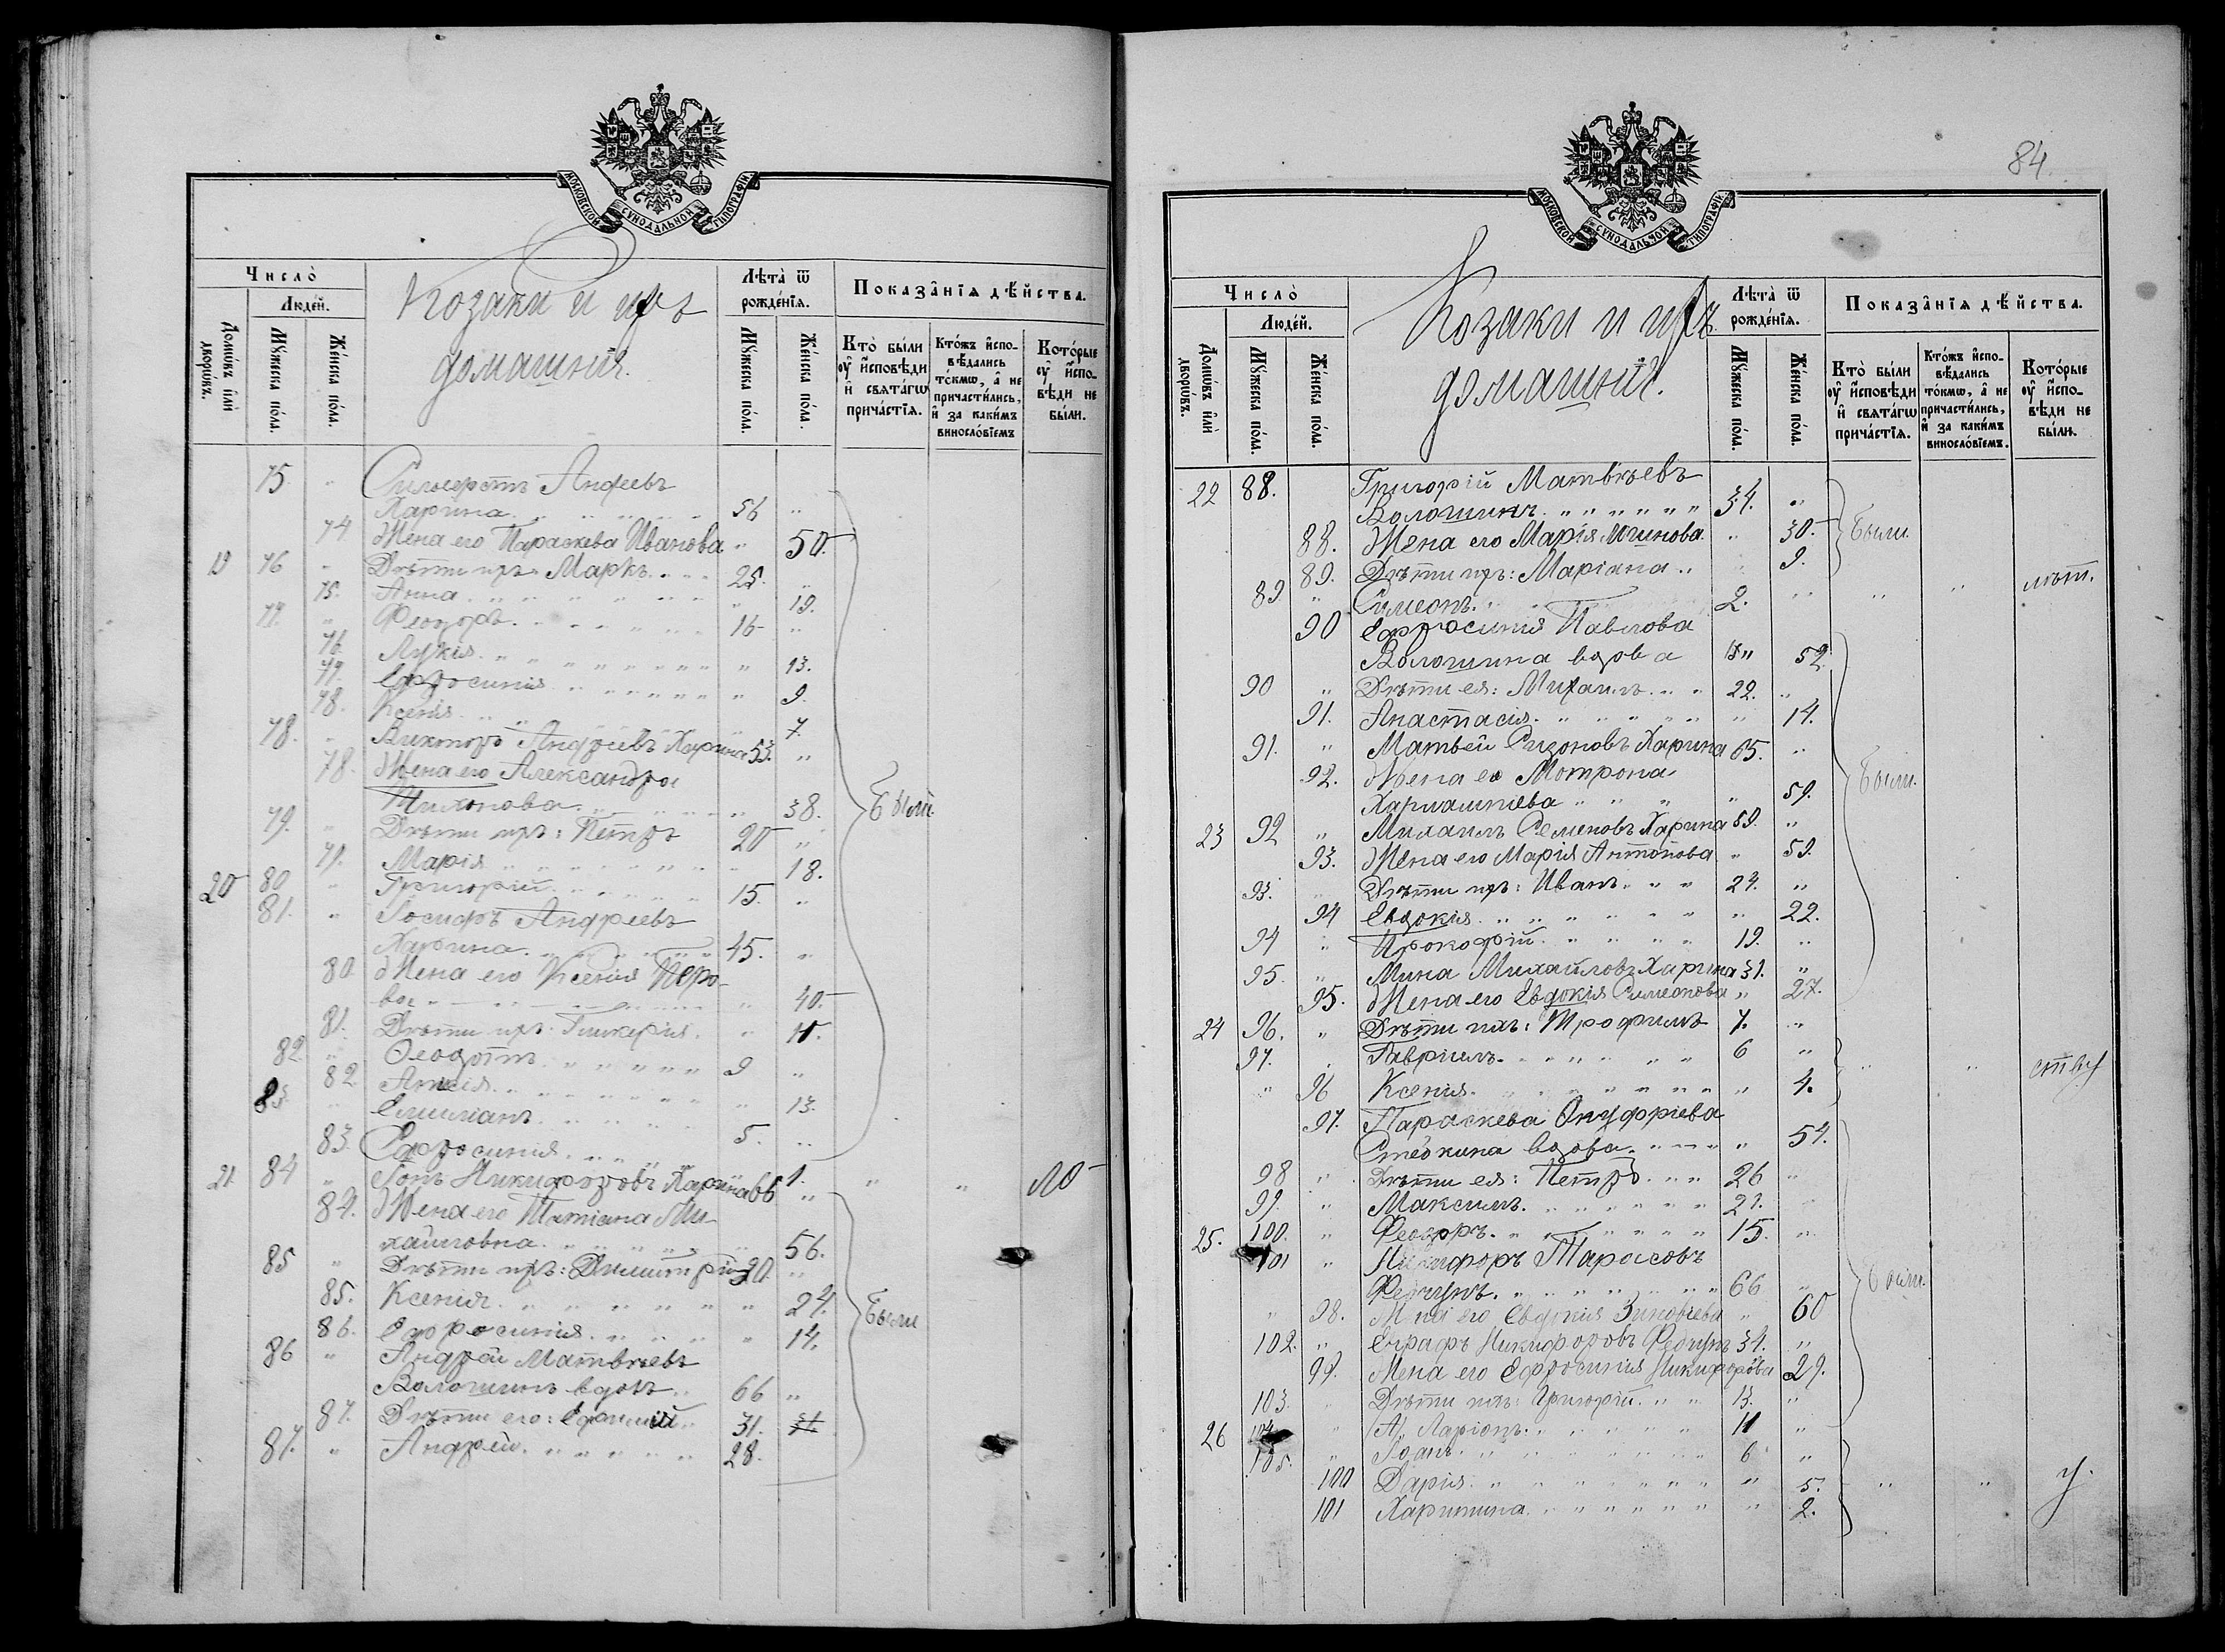 МОСКОВСКОЙ СУНОДАЛЬНОЙ ТИПОГРАФІИ.
Число̀
Людей.
Домѡвъ и҆лѝ дворѡвъ.
Мꙋжеска пола.
Женска пола.
Козаки и ихъ
домашніе.
Лѣта̀ ѿ рожденїѧ.
Мꙋжеска пола.
Женска пола.
Показанїѧ дѣйства.
Кто̀ были оу҆ и҆сповѣди и҆ свѧтагѡ причастїѧ.
Ктожъ и҆сповѣдались токмѡ, а҆ не причастились, и҆ за какимъ винословїемъ
Которые оу҆ и҆сповѣди не были.
75 " Сильверстъ Андреевъ
Харина 56 "
74 Жена его Параскева Иванова " 50.
19 76 " Дѣти ихъ Маркъ 25. "
75. Анна " 19.
77. " Феодоръ 16 "
76. Лукія " 13.
77. Евфросинія " 9.
78. Ксенія 7.
78. " Викторъ Андреевъ Харина 53. "
78. Жена его Александра
Тихонова " 38.
79. " Дѣти ихъ: Петръ 20 "
79. Марія " 18.
20 80 " Григорій 15. "
81. " Іосифъ Андреевъ
Харина 45. "
80 Жена его Ксенія Петро-
ва " 40.
81. Дѣти ихъ: Гликерія " 11.
82. " Феодотъ 9 "
82 Анисія " 13.
83. " Емиліанъ 5. "
83. Евфросинія 1.
Были.
21. 84 " Іоанъ Никифоровъ Харина 66 " " " ЛО
84. Жена его Татіана Ми-
хайловна 56.
85 " Дѣти ихъ: Димитрій 30. "
85. Ксенія 24.
86. Евфросинія " 14.
86 " Андрей Матвѣевъ
Волошинъ вдовъ 66 "
87. Дѣти его: Ефимій 31. 31
87. " Андрей 28.
Были
84.
МОСКОВСКОЙ СУНОДАЛЬНОЙ ТИПОГРАФІИ.
Число̀
Людей.
Домѡвъ и҆лѝ дворѡвъ.
Мꙋжеска пола.
Женска пола.
Козаки и ихъ
домашніе.
Лѣта̀ ѿ рожденїѧ.
Мꙋжеска пола.
Женска пола.
Показанїѧ дѣйства.
Кто̀ были оу҆ и҆сповѣди и҆ свѧтагѡ причастїѧ.
Ктожъ и҆сповѣдались токмѡ, а҆ не причастились, и҆ за какимъ винословїемъ.
Которые оу҆ и҆сповѣди не были.
22 88. Григорій Матвѣевъ
Волошинъ 34. "
88. Жена его Марія " 30. Были.
89. Дѣти ихъ: Маріана " 9.
89 " Симеонъ 2. " " " лѣт.
90 Евфросинія Павлова
Волошина вдова " 52.
90 " Дѣти ея: Михаилъ 22. "
91. Анастасія " 14.
91. " Матвей Харина 65. "
92. Жена его Мотрона
Харлампіева " 59. Были.
23 92 " Михаилъ Семеновъ Харина 59. "
93. Жена его Марія Антонова " 59.
93. Дѣти ихъ: Иванъ 24. "
94 Евдокія " 22.
94 " Прокофій 19. "
95. " Мина Михайловъ Харина 31. "
95. Жена его Евдокія Симеонова " 27.
24 96. " Дѣти ихъ: Трофимъ 7. "
97. " Гавріилъ 6 " " "
" 96 Ксенія " 4.
97. Параскева Онуфріева
вдова " 54.
98 " Дѣти ея: Петръ 26 "
99. " Максимъ 21. "
25. 100. " Феодоръ 15. "
101 " Никифоръ Тарасовъ
66 " Были.
" 98. Жена его Евдокія Зиновіева " 60
102. " Никифоровъ 34. "
99. Жена его Евфросинія Никифорова 29.
103. " Дѣти ихъ: Григорій 13. "
26 104 " Ларіонъ 11 "
105. " Іоанъ 6 "
100 Дарія " 5. " "
101 Харитина " 2.